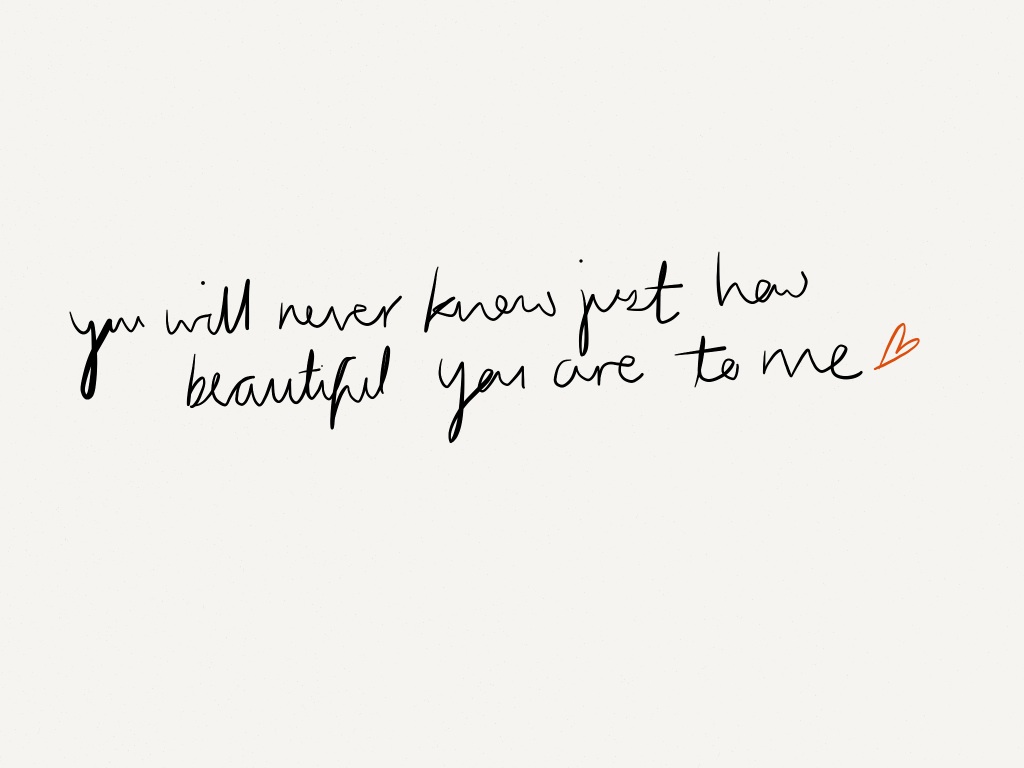 you will never know just how
beautiful you are to me